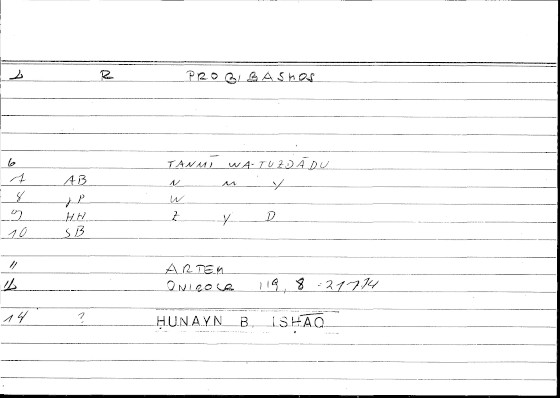 R PROBIBASMOS
6 TANMĪ WA-TUZDĀDU
7 AB N M Y
8 JP W
9 HH Z Y D
10 SB
11 ARTEM
ONIROCR 119, 8 - 21774
14 ? ḤUNAYN B. ISḤĀQ